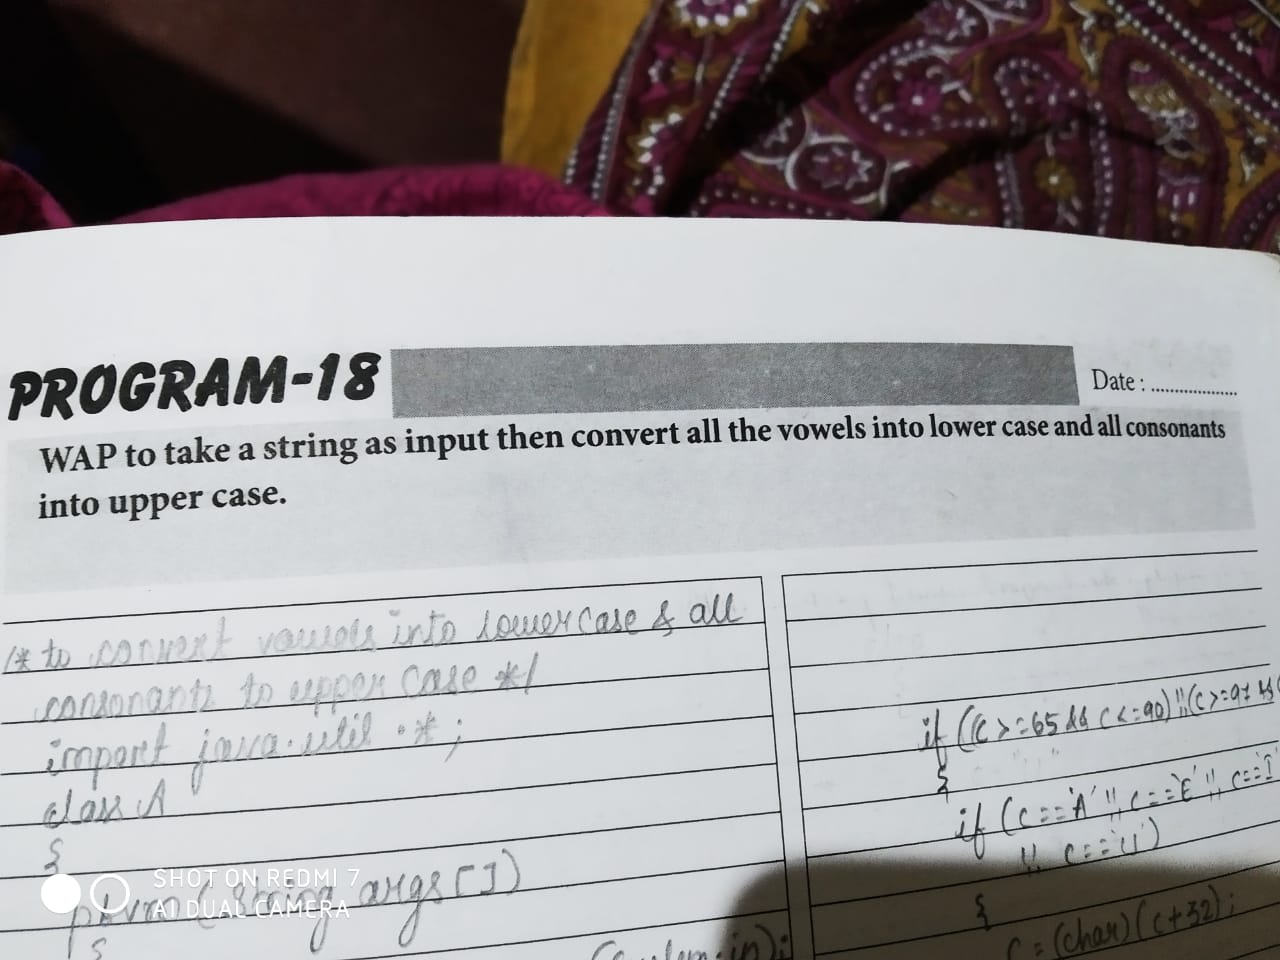 PROGRAM-18
Date : ..................
WAP to take a string as input then convert all the vowels into lower case and all consonants
into upper case.
/* to convert vowels into lowercase & all
consonants to upper case */
import java.util.*;
class A
{
psvm (String args[])
{
in);
if ((c >=65 && c <=90) || (c >=97 &&
{
if (c=='A' || c=='E' || c=='I'
|| c=='U')
{
c = (char)(c+32);
SHOT ON REDMI 7
AI DUAL CAMERA